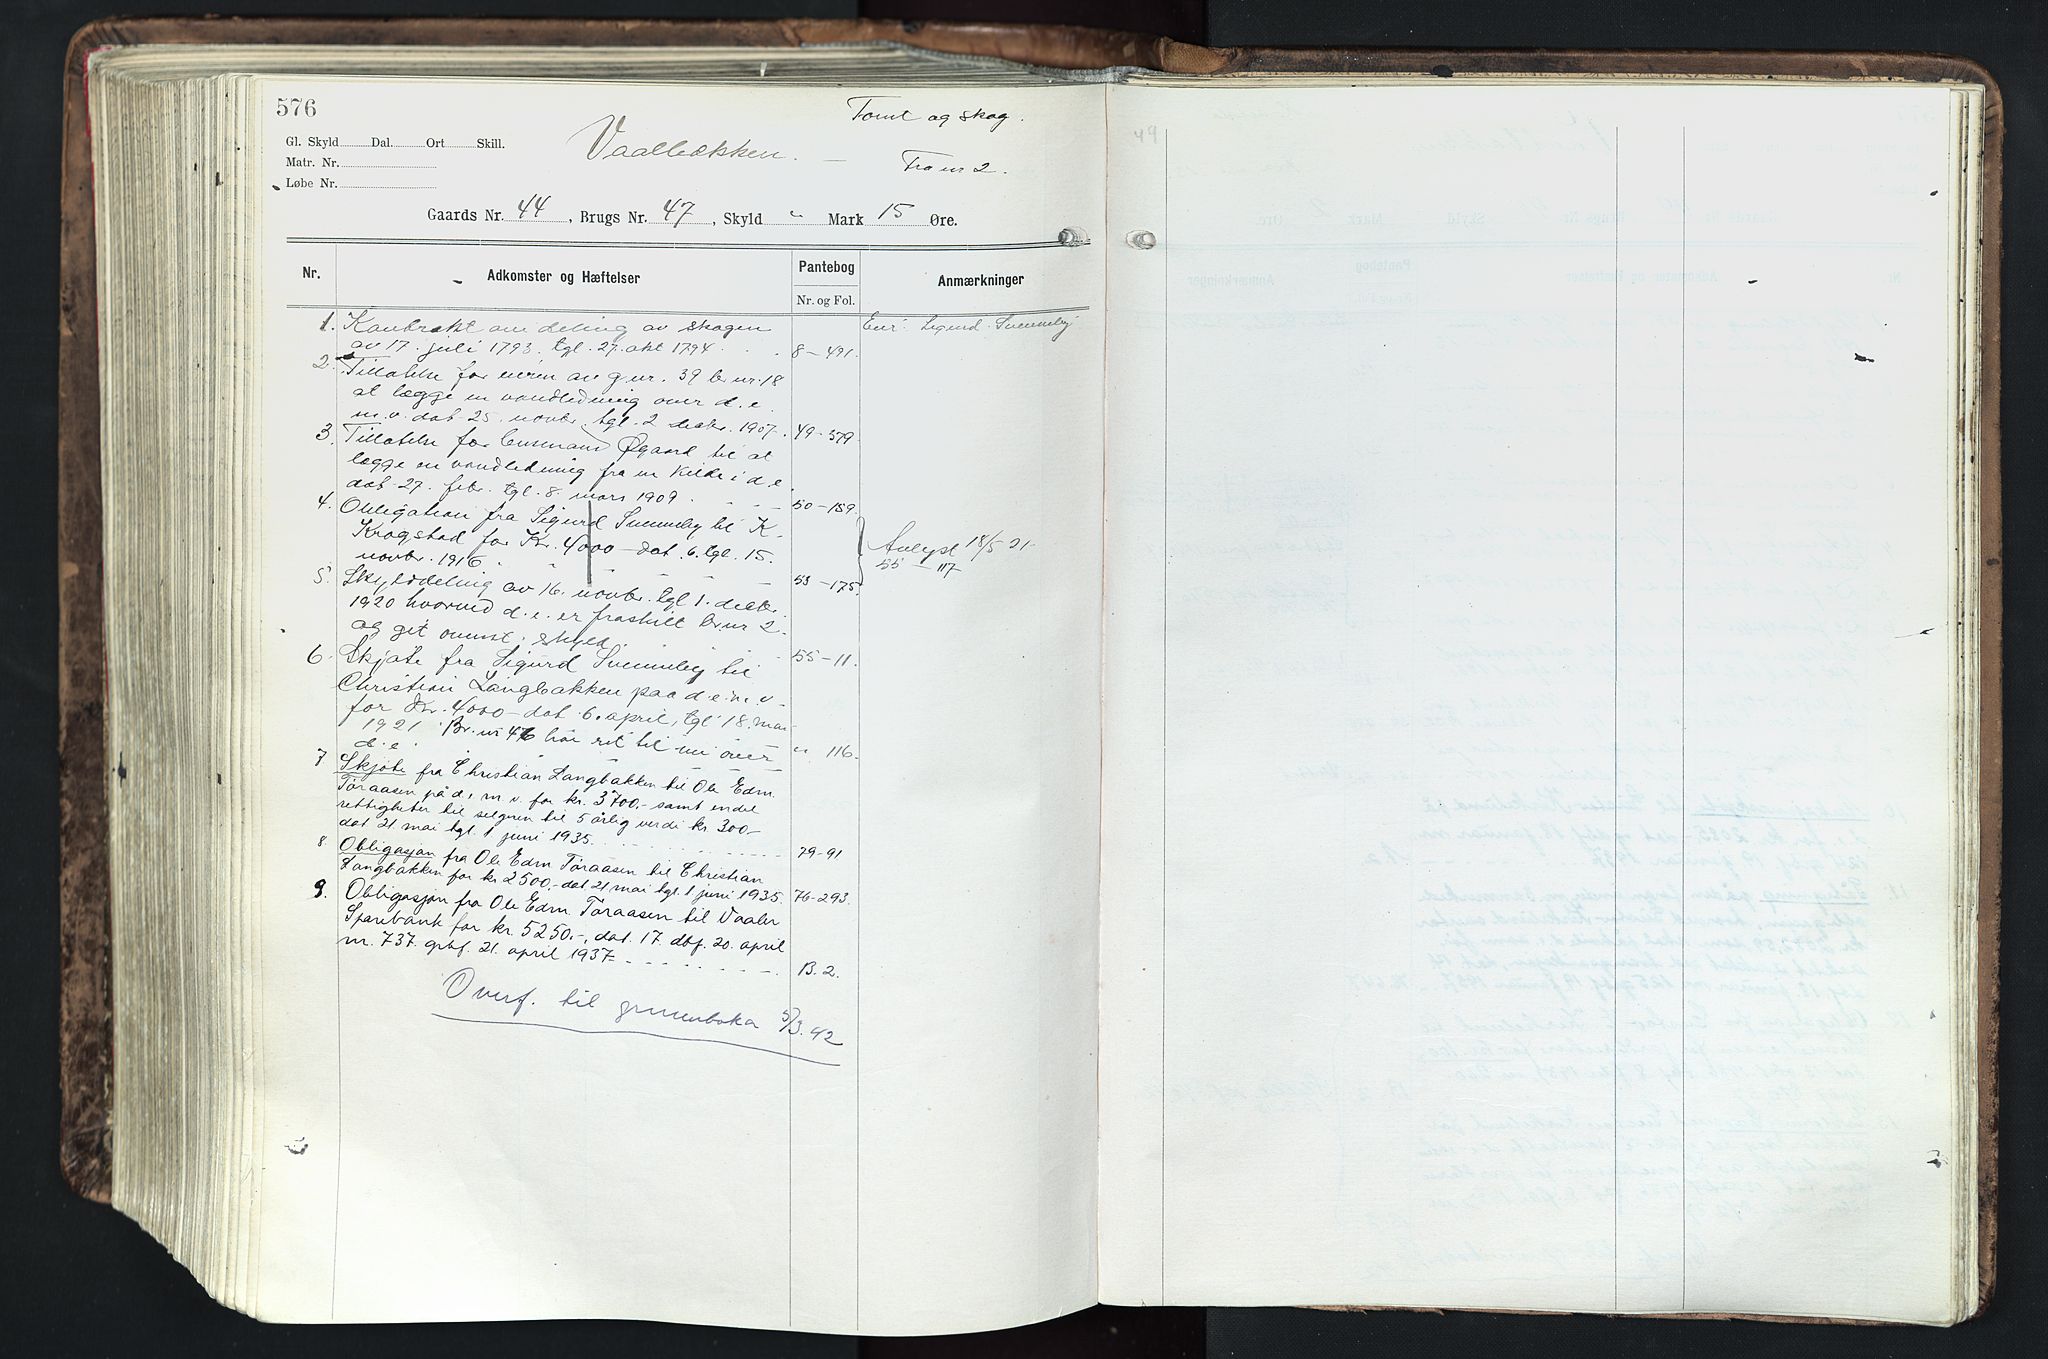 576
Tomt og skog.
Gl. Skyld Dal. Ort Skill.
Vaalbækken. —
Matr. Nr.
Fra nr 2.
Løbe Nr.
Gaards Nr. 44, Brugs Nr. 47, Skyld " Mark 15 Øre.
Nr. Adkomster og Hæftelser Pantebog Anmærkninger
Nr. og Fol.
1. Kontrakt om deling av skogen Eier: Sigurd Svenneby
av 17. juli 1793. tgl. 27. okt 1794. . . 8 – 491.
2. Tillatelse for eieren av g.nr. 39 br.nr. 18
at lægge en vandledning over d. e.
m. v. dat. 25. novbr. tgl. 2 decbr. 1907. 49 – 379
3. Tillatelse for Øgaard til at
lægge en vandledning fra en kilde i d. e.
dat. 27. febr. tgl. 8. mars 1909. - - - 50 – 159.
4. Obligation fra Sigurd Svenneby til K.
Krogstad for Kr. 4000 – dat. 6. tgl. 15. Avlyst 18/5 21
novbr. 1916 53 – 175. 55 – 117
5. Skylddeling av 16. novbr. tgl 1. decbr.
1920 hvorved d. e. er fraskilt br nr 2
og git ovenst. skyld. 55 – 11.
6. Skjøte fra Sigurd Svenneby til
Christian Langbakken paa d. e. m. v.
for Kr. 4000 – dat. 6. april, tgl. 18. mai
1921. Br. nr 46 har ret til vei over
d. e. " 116.
7 Skjøte fra Christian Langbakken til Ole Edm.
Toraasen på d. e. m. v. for kr. 3700.- samt endel
rettigheter til selgeren til 5 årlig verdi kr 300–
dat 21 mai tgl. 1 juni 1935. . . . 79 – 91
8 Obligasjon fra Ole Edm Toraasen til Christian
Langbakken for kr 2500.- dat 21 mai tgl. 1 juni 1935. 76-293.
9. Obligasjon fra Ole Edm. Toraasen til Vaaler
Sparebank for kr. 5250.-, dat. 17. dbf. 20. april
nr. 737. grbf. 21. april 1937 - - - - B. 2.
Overf. til grunnboka 5/3. 42
49